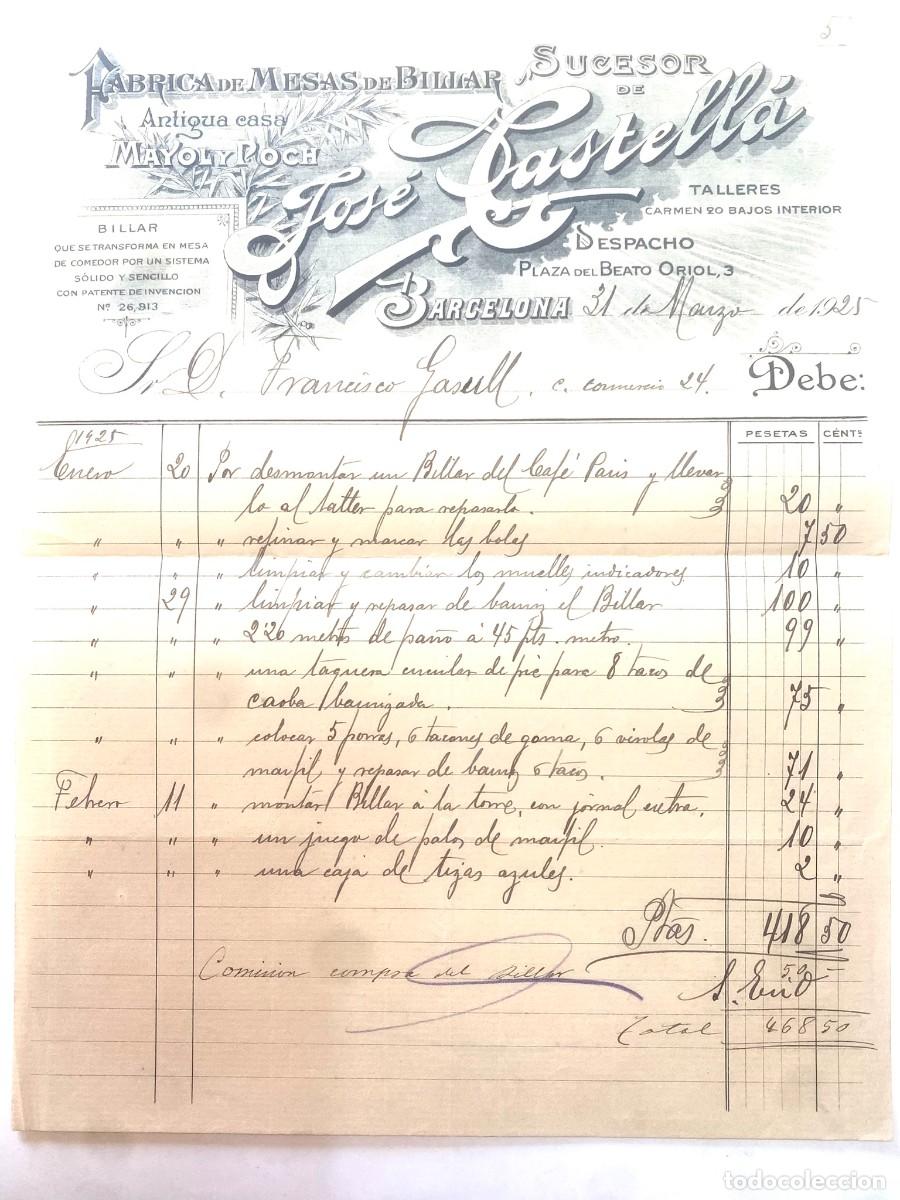 5
FÁBRICA DE MESAS DE BILLAR
SUCESOR
DE
Antigua casa
MAYOL Y POCH
José Castellá
TALLERES
CARMEN 20 BAJOS INTERIOR
BILLAR
QUE SE TRANSFORMA EN MESA
DE COMEDOR POR UN SISTEMA
SÓLIDO Y SENCILLO
CON PATENTE DE INVENCION
Nº 26,913
DESPACHO
PLAZA DEL BEATO ORIOL, 3
BARCELONA 31 de Marzo de 1925
Sr. D. Francisco Gasull. c. comercio 24. Debe:
PESETAS CÉNTS
1925
Enero 20 Por desmontar un Billar del Café Paris y llevar
lo al taller para repasarlo. 20 "
" " " refinar y marcar las bolas 7 50
" " " limpiar y cambiar los muelles indicadores 10 "
" 29 " limpiar y repasar de barniz el Billar 100 "
" " " 2'20 metros de paño á 45 pts. metro. 99 "
" " " una taquera circular de pie para 8 tacos de
caoba barnizada. 75 "
" " " colocar 5 porras, 6 tacones de goma, 6 virolas de
marfil y repasar de barniz 6 tacos. 71 "
Febrero 11 " montar Billar á la torre, con jornal extra. 24 "
" " " un juego de palos de marfil. 10 "
" " " una caja de tizas azules. 2 "
Ptas. 418 50
Comision compra del Billar 50 -
S. E. ú O
Total 468 50
todocoleccion.net